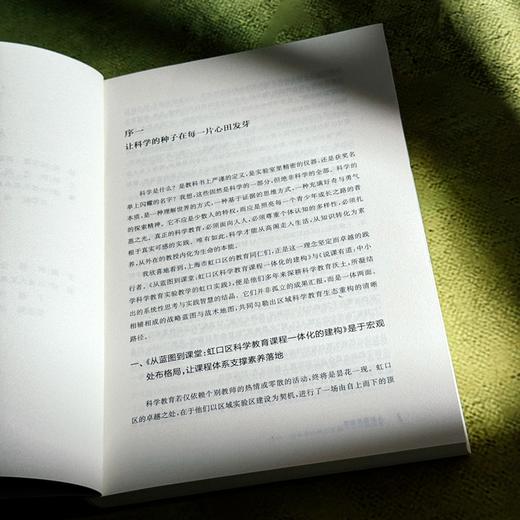 序一
让科学的种子在每一片心田发芽
科学是什么？是教科书上严谨的定义，是实验室里精密的仪器，还是获奖名
单上闪耀的名字？我想，这些固然是科学的一部分，但绝非科学的全部。科学的
本质，是一种理解世界的方式，一种基于证据的思维方式，一种充满好奇与勇气
的探索精神。它不应是少数人的特权，而应是照亮每一个青少年成长之路的普
惠之光。真正的科学教育，必须面向人人，必须尊重个体认知的多样性，必须扎
根于真实可感的实践。唯有如此，科学才能从高阁走入生活，从知识转化为素
养，从外在的教授内化为生命的本能。
我欣喜地看到，上海市虹口区的教育同仁们，正是这一理念坚定而卓越的践
行者。《从蓝图到课堂：虹口区科学教育课程一体化的建构》与《说课有道：中小
学科学教育实验教学的虹口实践》，便是他们多年来深耕科学教育沃土，所凝结
出的系统性思考与实践智慧的结晶。它们并非孤立的成果汇报，而是一体两面、
相辅相成的战略蓝图与战术地图，共同勾勒出区域科学教育生态重构的清晰
路径。
一、《从蓝图到课堂：虹口区科学教育课程一体化的建构》是于宏观
处布格局，让课程体系支撑素养落地
科学教育若仅依赖个别教师的热情或零散的活动，终将是昙花一现。虹口
区的卓越之处，在于他们以区域实验区建设为契机，进行了一场由自上而下的顶